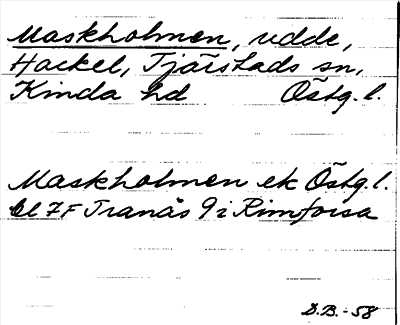 Maskholmen, udde,
Hackel, Tjärstads sn,
Kinda hd Östg. l.
Maskholmen ek Östg. l.
bl 7F Tranås 9 i Rimforsa
D.B. - 58